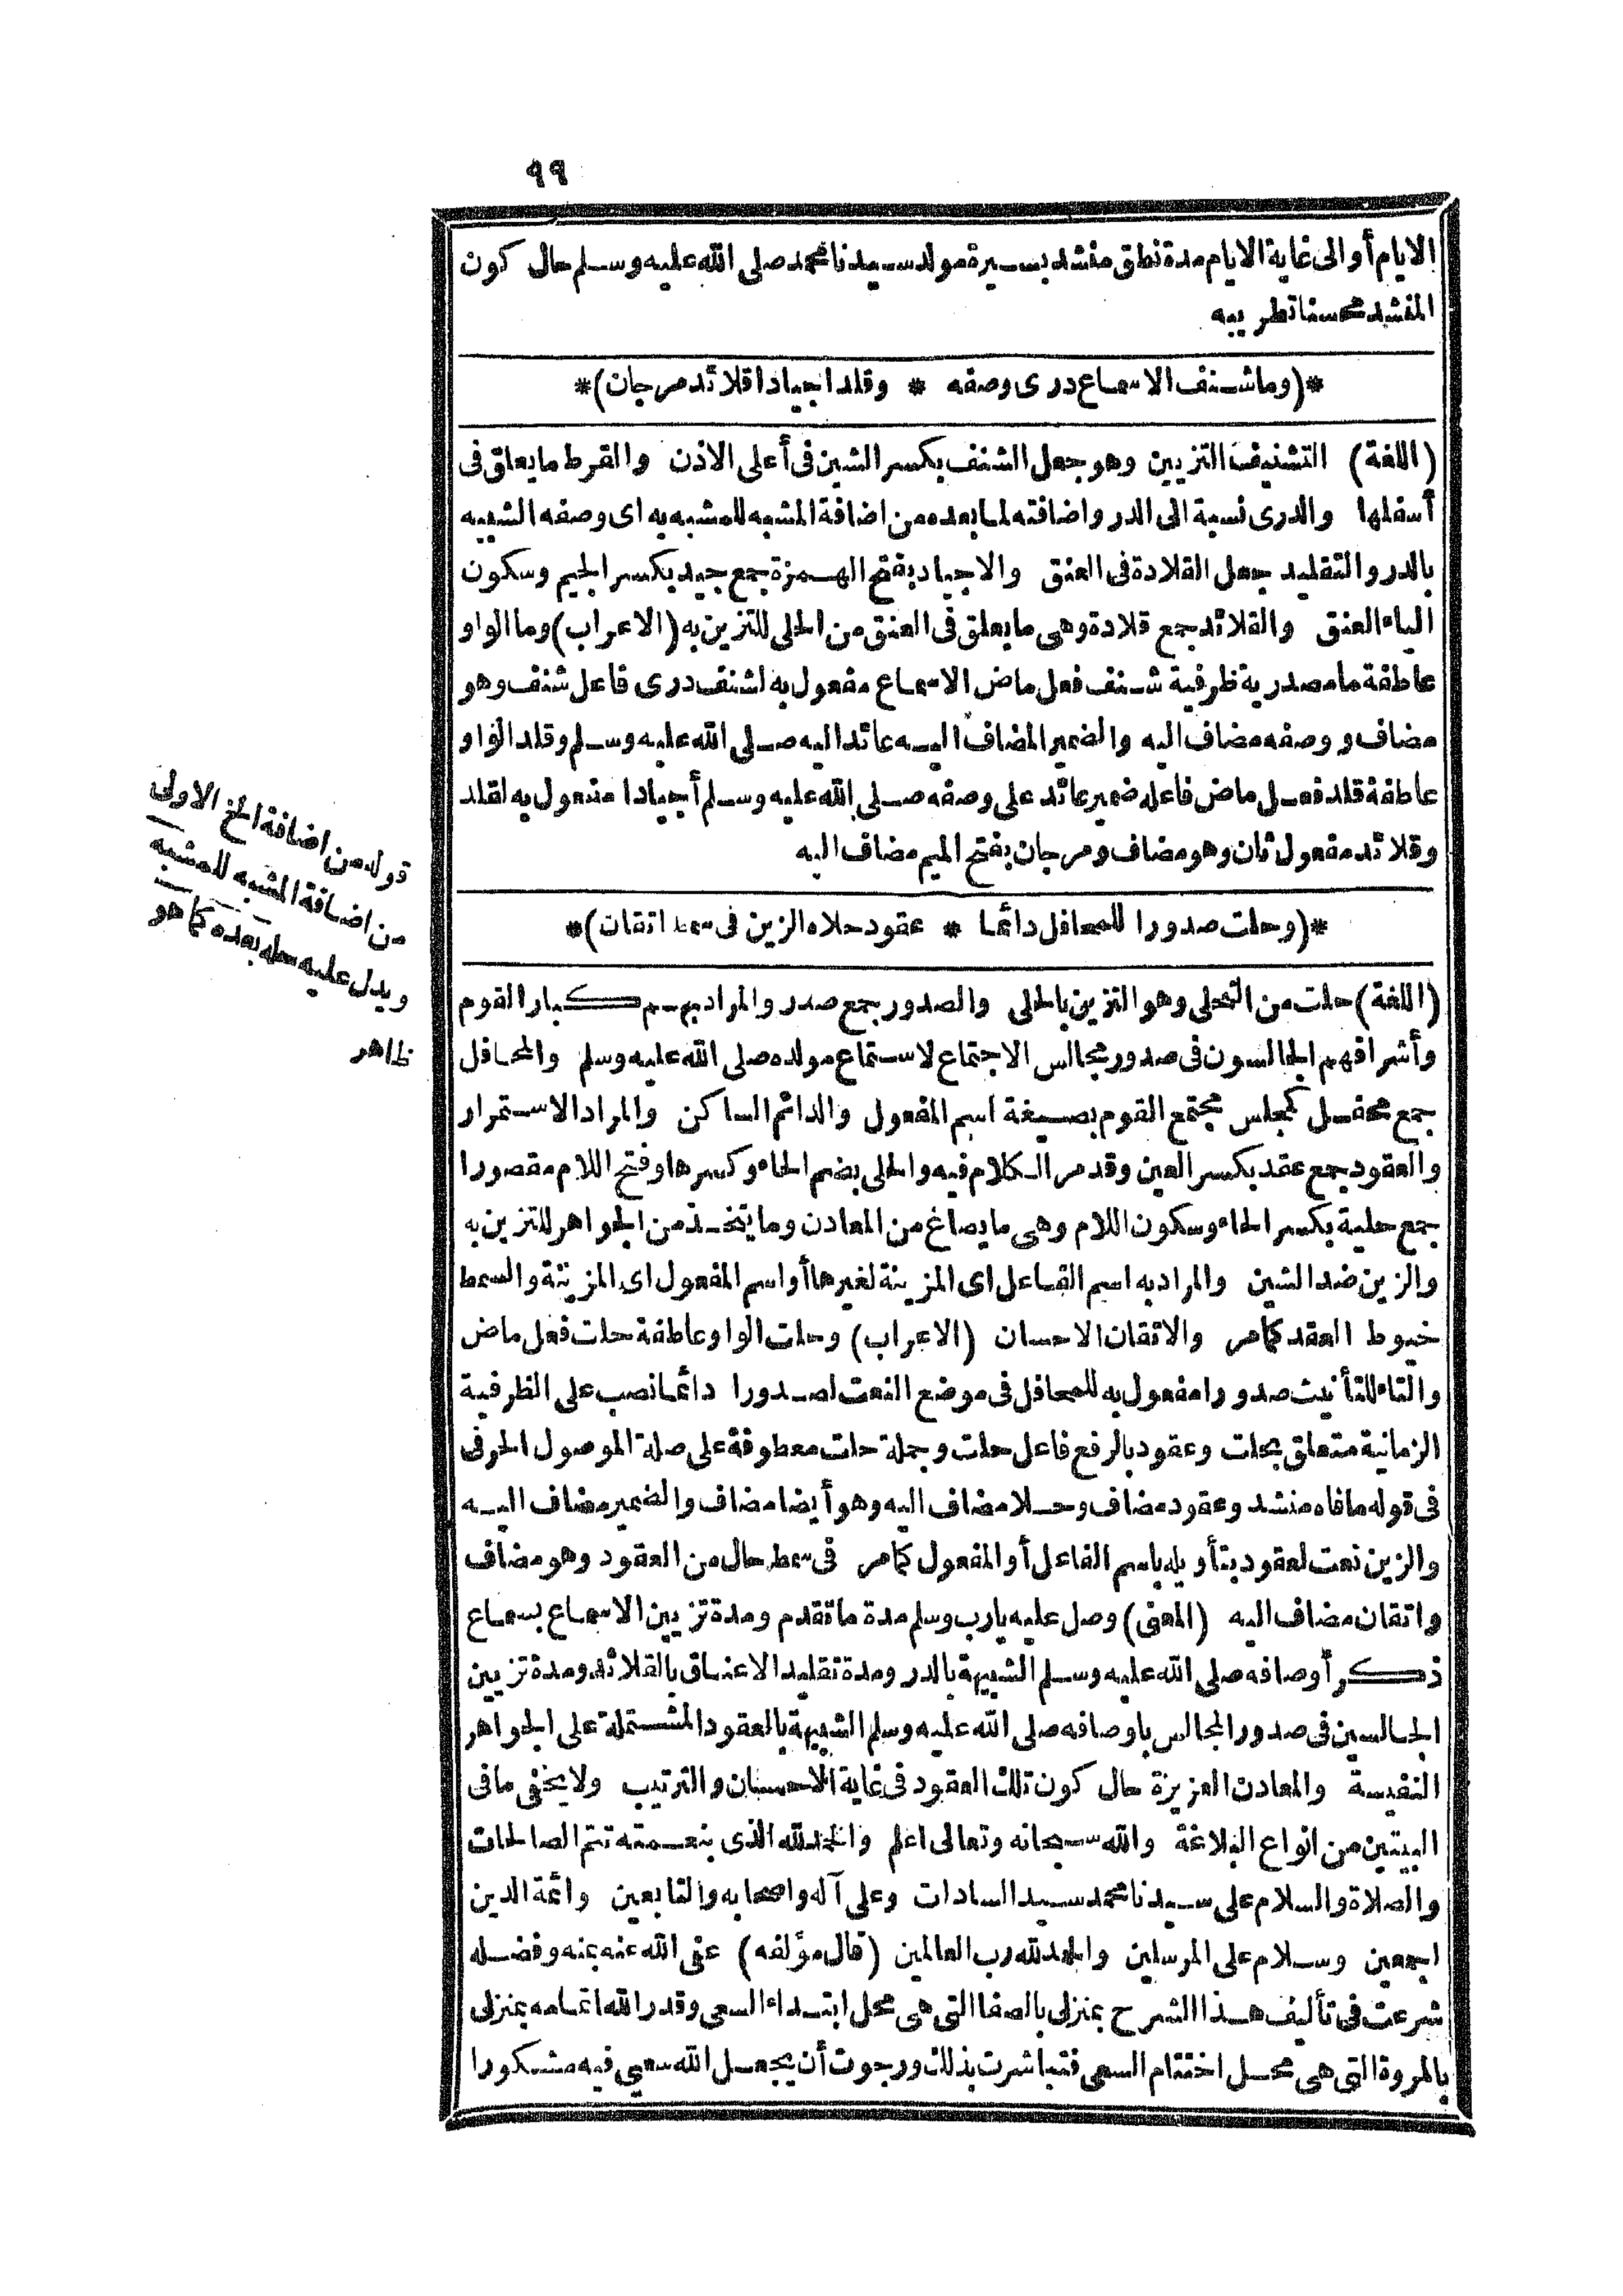 ٩٩
الايام أو الى غاية الايام مدة نطق منشد بسيرة مولد سيدنا محمد صلى الله عليه وسلم حال كون
المنشد محسنا تطريبه
*(وما شنف الاسماع درى وصفه * وقلد اجيادا قلائد مرجان)*
(اللغة) التشنيف التزيين وهو جعل الشنف بكسر الشين فى أعلى الاذن والقرط ما يعلق فى
أسفلها والدرى نسبة الى الدر واضافته لما بعده من اضافة المشبه للمشبه به اى وصفه الشبيه
بالدر والتقليد جعل القلادة فى العنق والاجياد بفتح الهمزة جمع جيد بكسر الجيم وسكون
الياء العنق والقلائد جمع قلادة وهى ما يعلق فى العنق من الحلى للتزين به (الاعراب) وما الواو
عاطفة ما مصدرية ظرفية شنف فعل ماض الاسماع مفعول به لشنف درى فاعل شنف وهو
مضاف ووصفه مضاف اليه والضمير المضاف اليه عائد اليه صلى الله عليه وسلم وقلد الواو
عاطفة قلد فعل ماض فاعله ضمير عائد على وصفه صلى الله عليه وسلم أجيادا مفعول به لقلد
وقلائد مفعول ثان وهو مضاف ومرجان بفتح الميم مضاف اليه
*(وحلت صدورا للمحافل دائما * عقود حلاه الزين فى سمط اتقان)*
(اللغة) حلت من التحلى وهو التزين بالحلى والصدور جمع صدر والمراد بهم كبار القوم
وأشرافهم الجالسون فى صدور مجالس الاجتماع لاستماع مولده صلى الله عليه وسلم والمحافل
جمع محفل كمجلس مجتمع القوم بصيغة اسم المفعول والدائم الساكن والمراد الاستمرار
والعقود جمع عقد بكسر العين وقد مر الكلام فيه والحلى بضم الحاء وكسرها وفتح اللام مقصورا
جمع حلية بكسر الحاء وسكون اللام وهى ما يصاغ من المعادن وما يتخذ من الجواهر للتزين به
والزين ضد الشين والمراد به اسم الفاعل اى المزينة لغيرها أو اسم المفعول اى المزينة والسمط
خيوط العقد كما مر والاتقان الاحسان (الاعراب) وحلت الواو عاطفة حلت فعل ماض
والتاء للتأنيث صدورا مفعول به للمحافل فى موضع النعت لصدورا دائما نصب على الظرفية
الزمانية متعلق بحلت وعقود بالرفع فاعل حلت وجملة حلت معطوفة على صلة الموصول الحرفى
فى قوله ما فاه منشد وعقود مضاف وحلا مضاف اليه وهو أيضا مضاف والضمير مضاف اليه
والزين نعت لعقود بتأويله باسم الفاعل أو المفعول كما مر فى سمط حال من العقود وهو مضاف
واتقان مضاف اليه (المعنى) وصل عليه يارب وسلم مدة ما تقدم ومدة تزيين الاسماع بسماع
ذكر أوصافه صلى الله عليه وسلم الشبيهة بالدر ومدة تقليد الاعناق بالقلائد ومدة تزيين
الجالسين فى صدور المجالس باوصافه صلى الله عليه وسلم الشبيهة بالعقود المشتملة على الجواهر
النفيسة والمعادن العزيزة حال كون تلك العقود فى غاية الاحسان والترتيب ولا يخفى ما فى
البيتين من انواع البلاغة والله سبحانه وتعالى اعلم والحمد لله الذى بنعمته تتم الصالحات
والصلاة والسلام على سيدنا محمد سيد السادات وعلى آله واصحابه والتابعين وائمة الدين
اجمعين وسلام على المرسلين والحمد لله رب العالمين (قال مؤلفه) عفى الله عنه بمنه وفضله
شرعت فى تأليف هذا الشرح بمنزلى بالصفا التى هى محل ابتداء السعى وقدر الله اتمامه بمنزلى
بالمروة التى هى محل اختتام السعى فتباشرت بذلك ورجوت أن يجعل الله سعيى فيه مشكورا
قوله من اضافة الخ الاولى
من اضافة المشبه للمشبه
ويدل عليه حله بعده كما هو
ظاهر